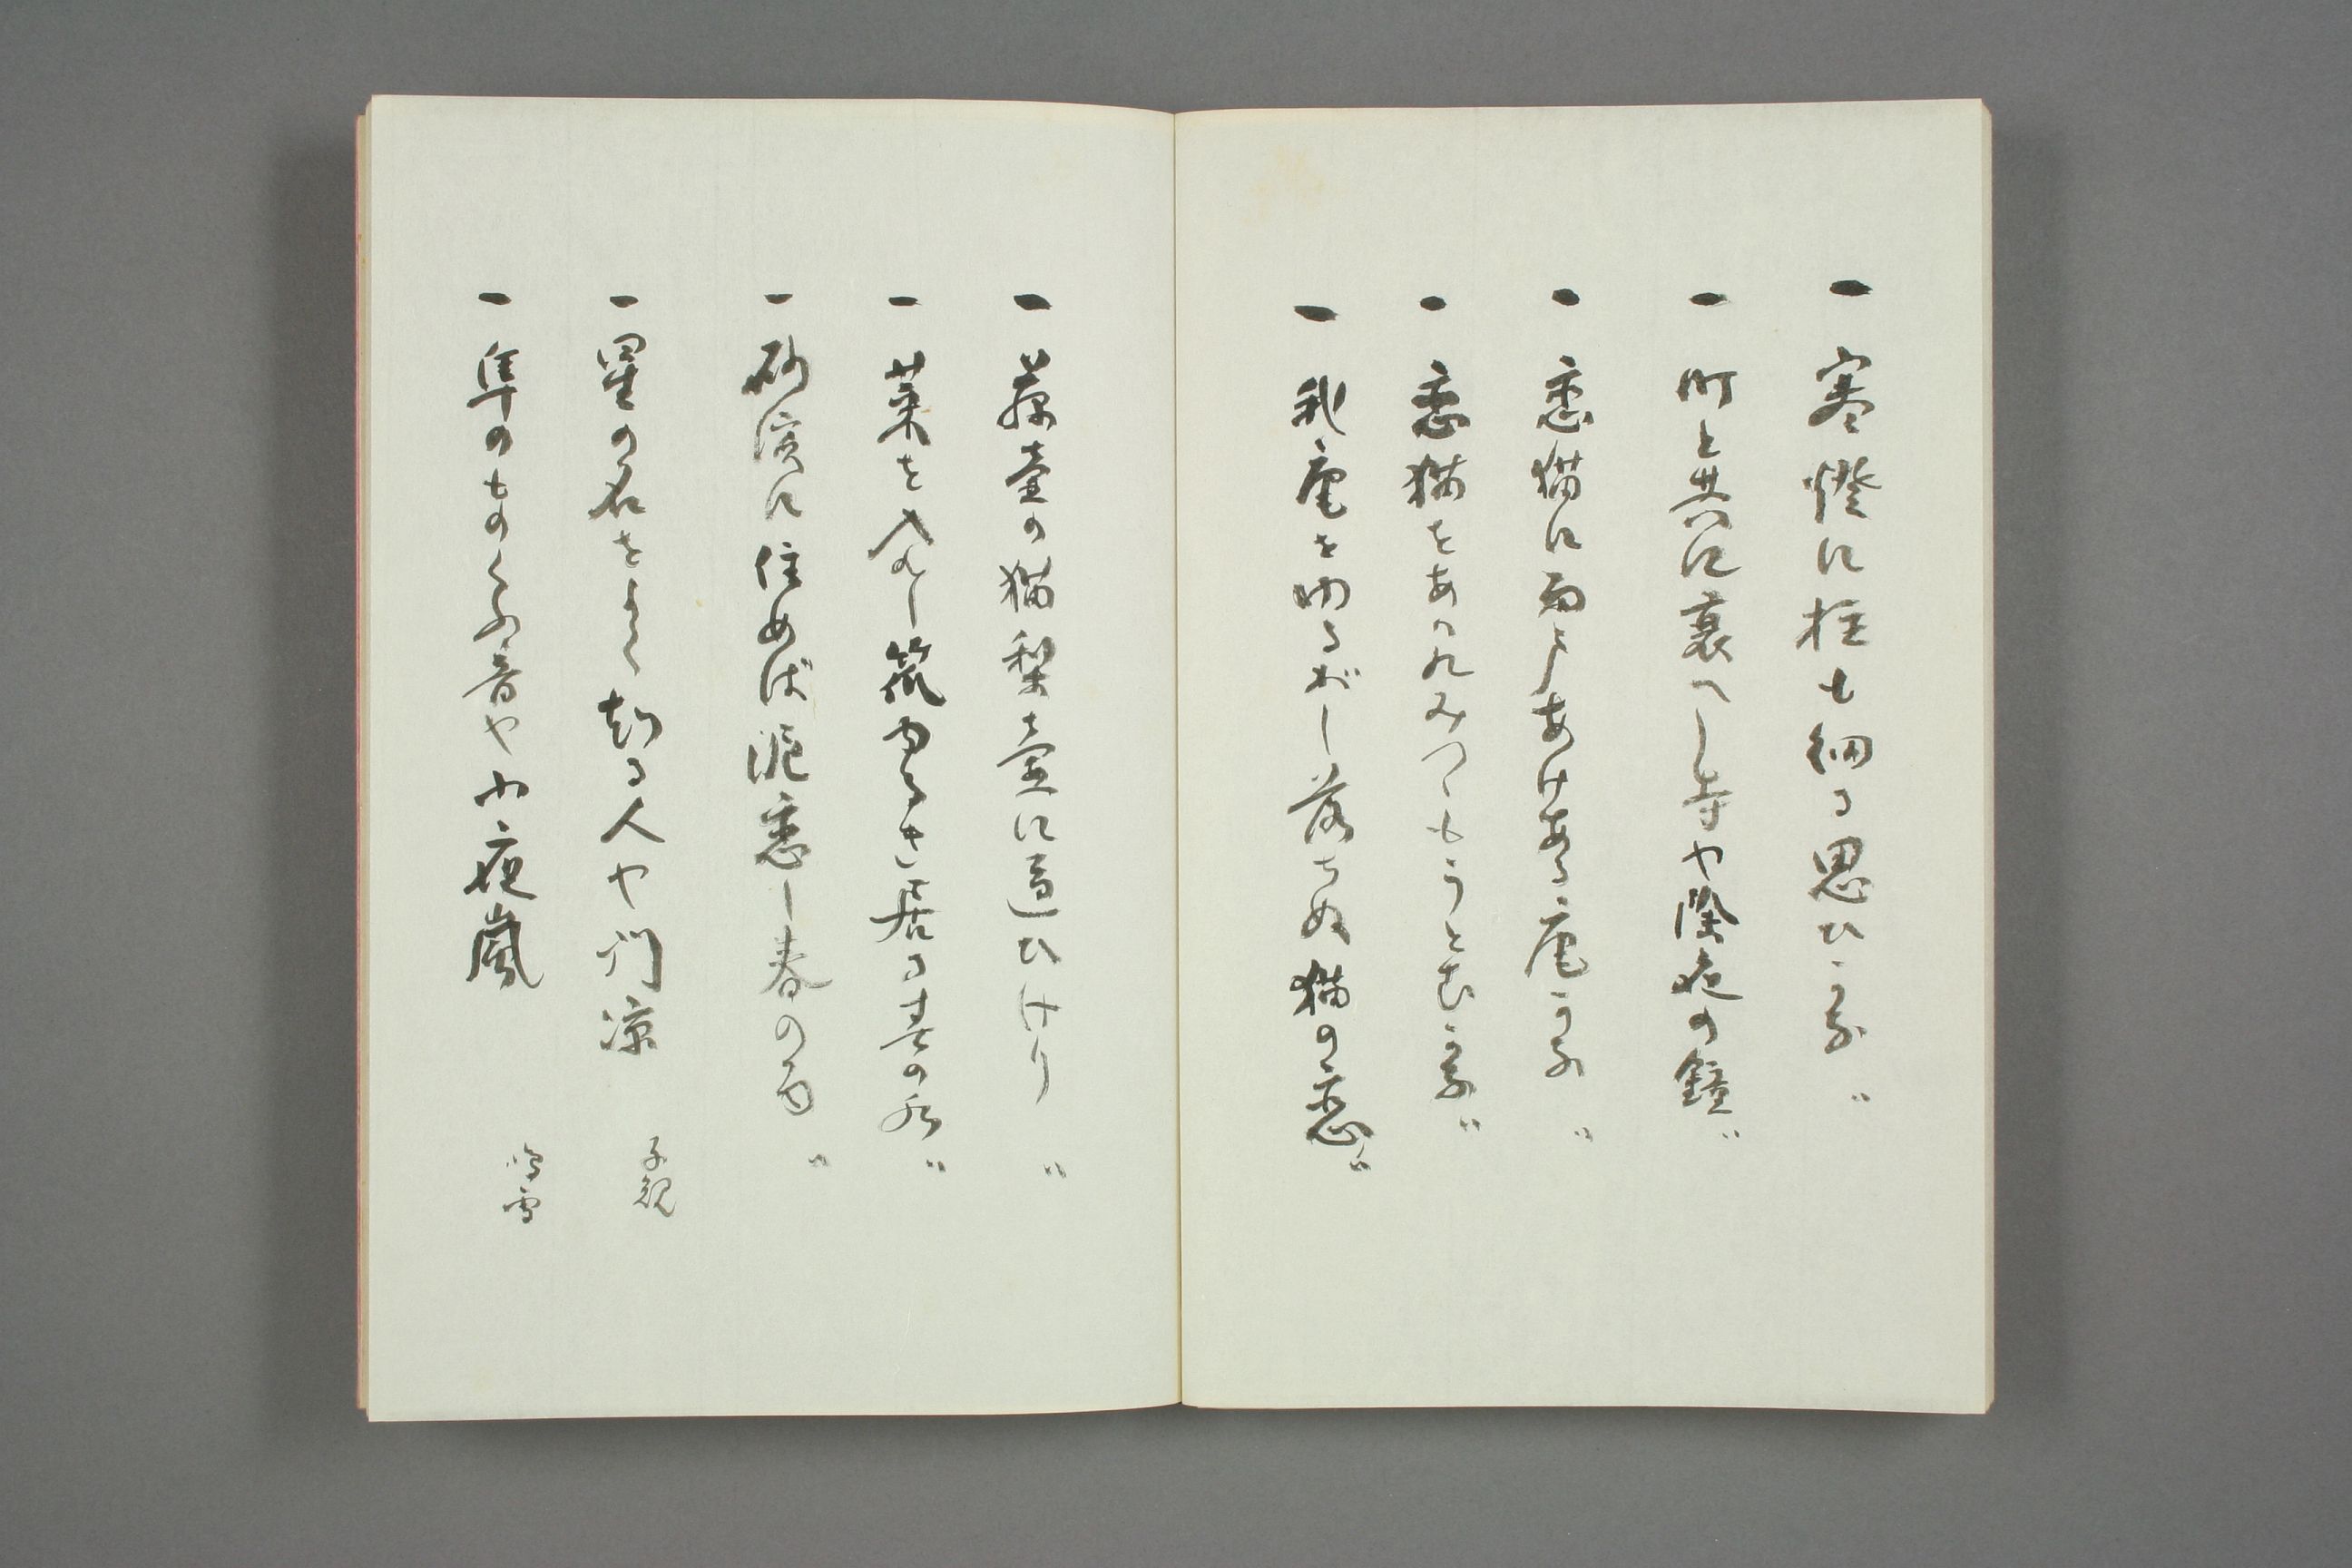 一 寒燈に柱も細る思ひかな 〃
一 町と共に衰へし寺や除夜の鐘 〃
一 恋猫に雨戸あけある庵かな 〃
一 恋猫をあはれみつゝもうとむかな 〃
一 我庵をゆるがし落ちぬ猫の恋 〃
一 藤壷の猫梨壷に通ひけり 〃
一 菜を入れし筑ゆるぎ居る春の水 〃
一 砂浜に住めば泥恋し春の雨 〃
一 星の名をよく知る人や門涼 子規
一 隼のものくふ音や小夜嵐 鳴雪